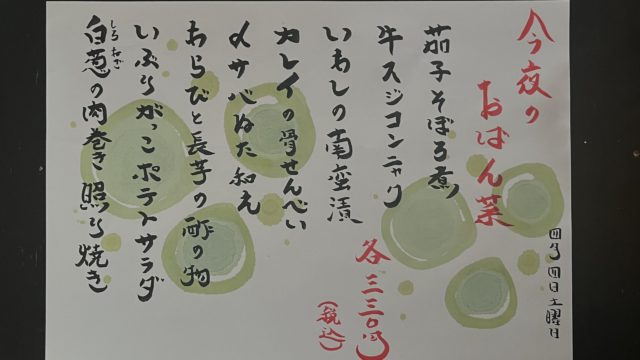 今夜の
おばん菜
四月四日土曜日
茄子そぼろ煮
牛スジコンニャク
いわしの南蛮漬
カレイの骨せんべい
〆サバぬた和え
わらびと長芋の酢の物
いぶりがっこポテトサラダ
白葱の肉巻き照り焼き
しろねぎ
各三三〇円
(税込)